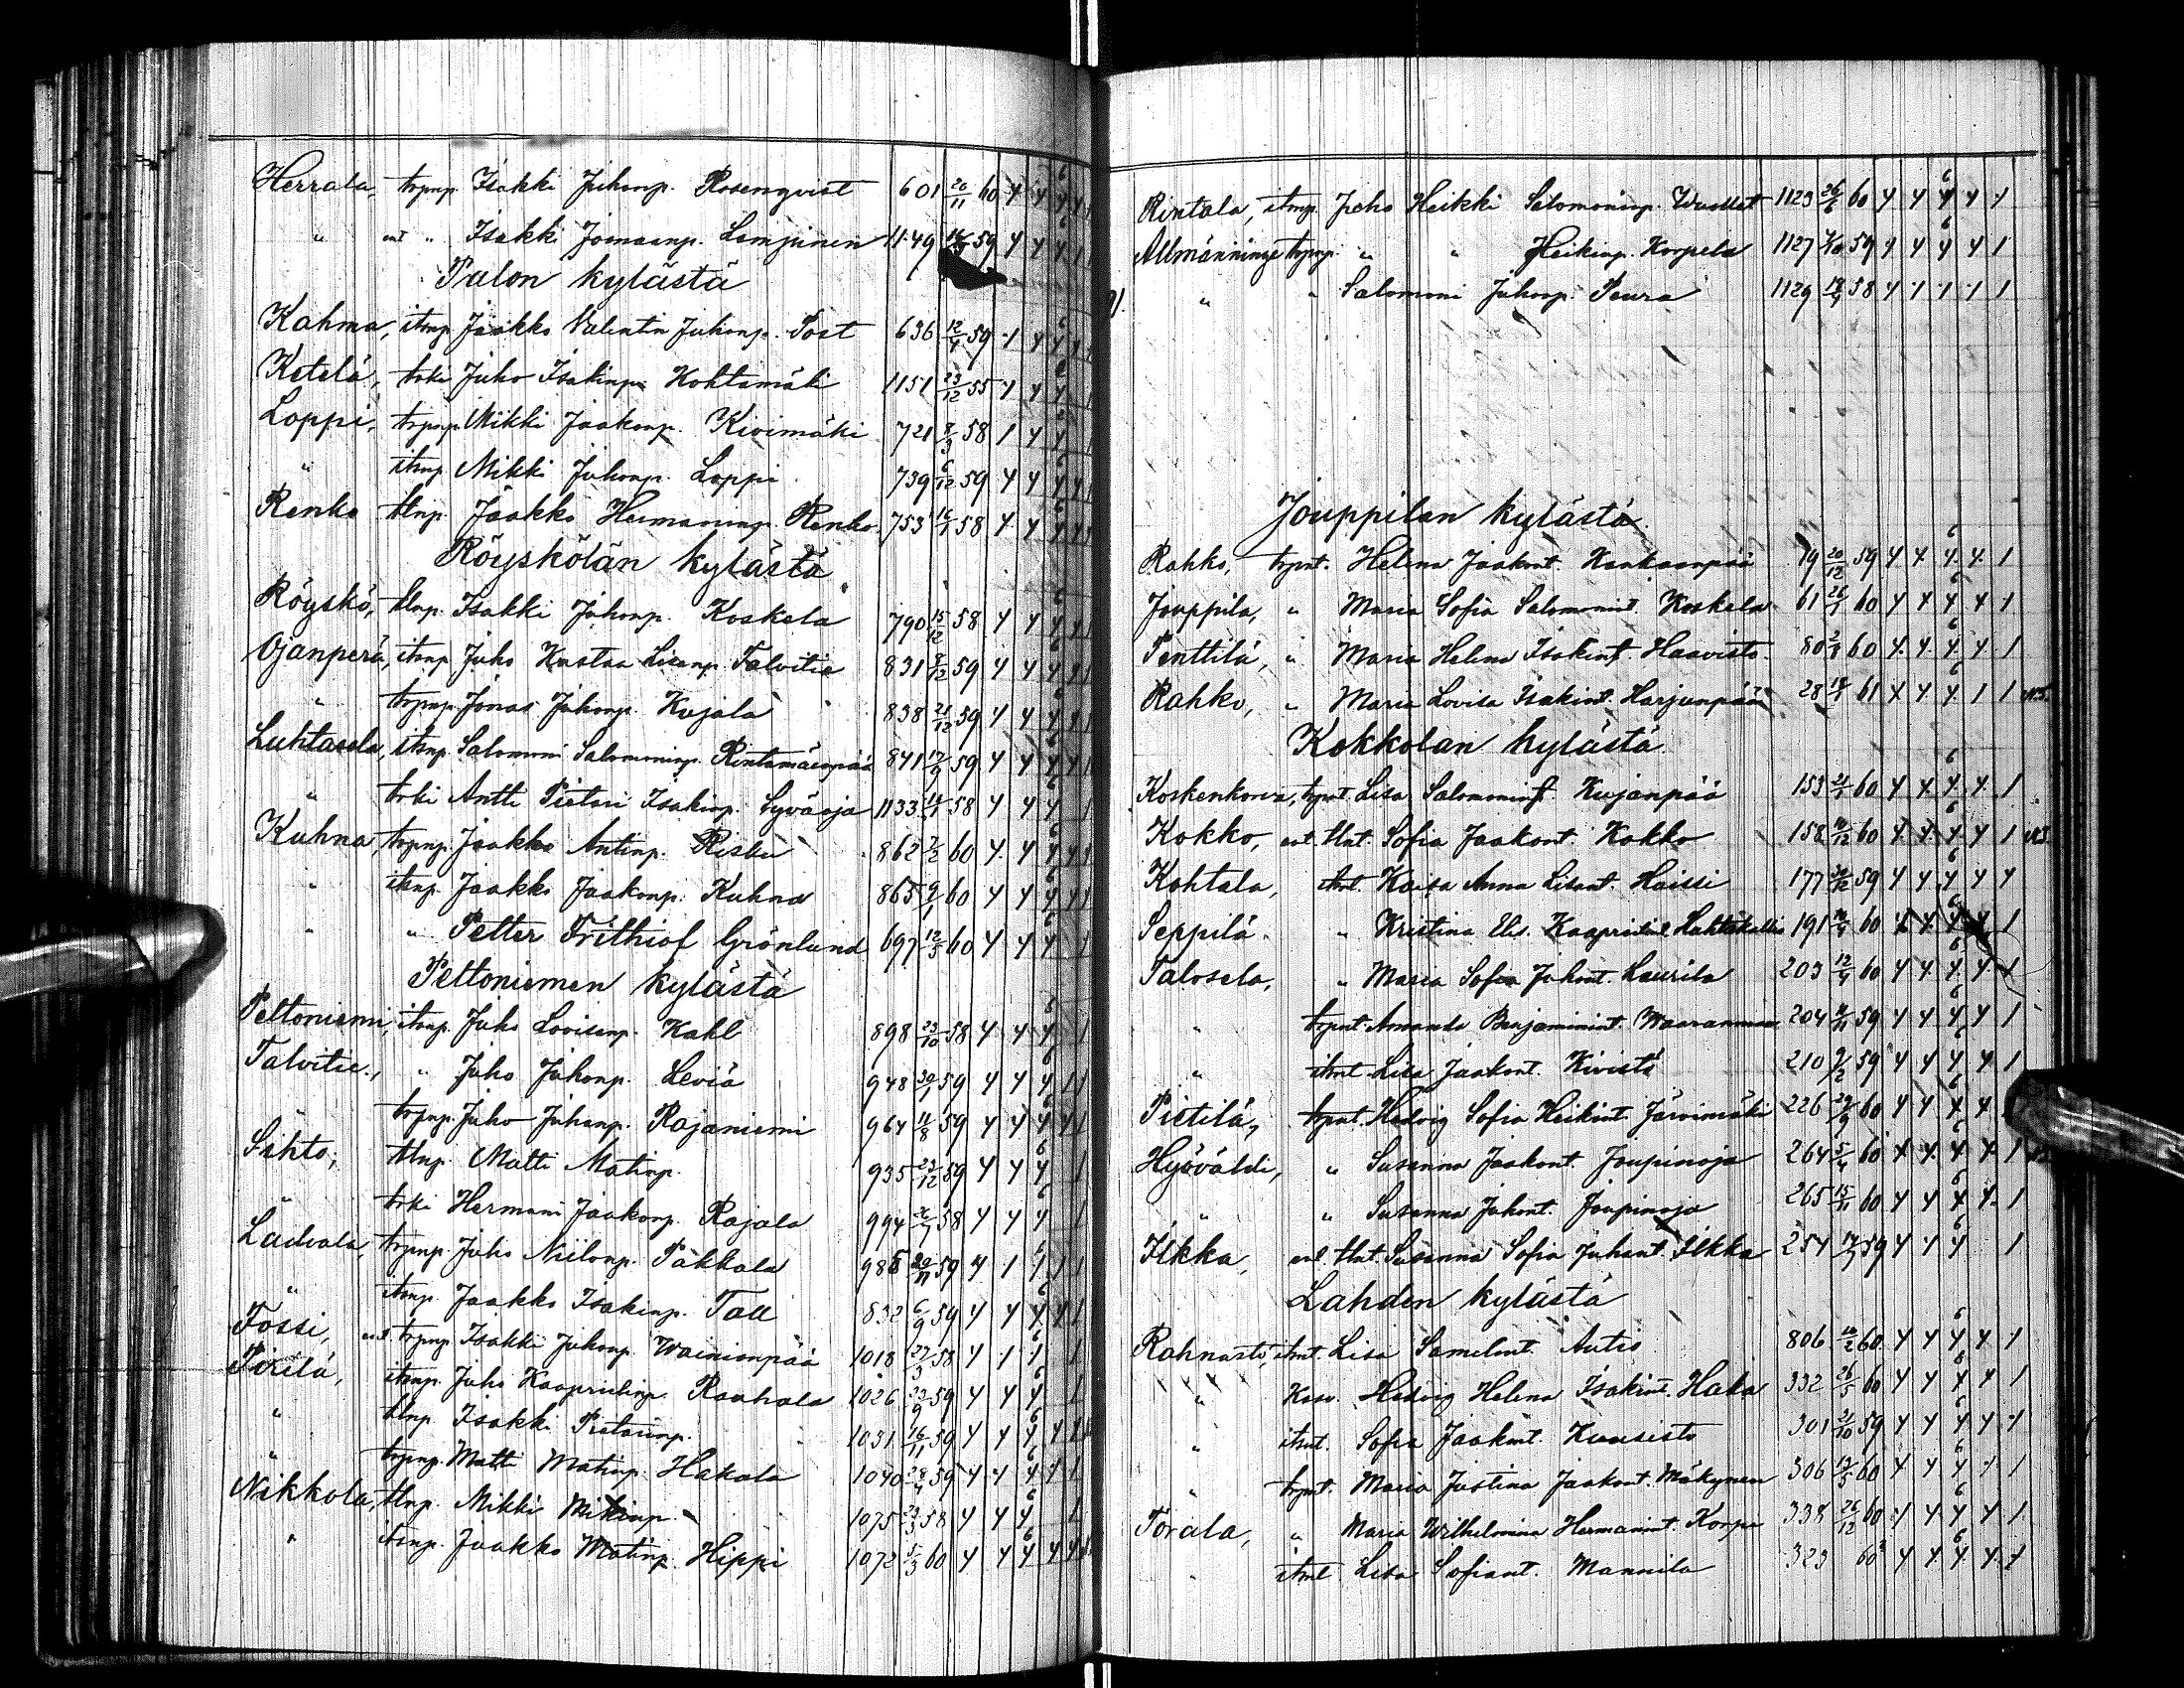 Herrala, trpnp. Isakki Juhonp. Rosenqvist 601 20/11 60 4 4 6/4 4 1
" ent " Isakki Joonaanp. Lamminen 1149 59 4 4 6/4 1
Palon kylästä
Kahma, itsnp. Jaakko Valentin Juhonp. Tost 636 12/4 59 1 4 6/4 4
Ketelä, trki Juho Isakinp. Kohtamäki 1151 23/12 55 1 4 6/4 1
Loppi, trpnp. Mikki Jaakonp. Kivimäki 721 8/3 58 1 4 6/4 1
" itsnp. Mikki Juhonp. Loppi 739 6/12 59 4 4 6/4 4 1
Renko tlnp. Jaakko Hermaninp. Renko 753 16/1 58 4 4 6/4 4 1
Röyskölän kylästä
Röyskö, tlnp. Isakki Juhonp. Koskela 790 15/12 58 4 4 6/4 4 1
Ojanperä, itsnp. Juho Kustaa Lisanp. Talvitie 831 8/12 59 4 4 6/4 4 1
" trpnp. Jonas Juhonp. Kujala 838 21/12 59 4 4 6/4 4 1
Luhtasela, itsnp. Salomoni Salomoninp. Rintamäenpää 841 17/9 59 4 4 6/4 4 1
" trki Antti Pietari Isakinp. Syväoja 1133 58 4 4 6/4 1
Kuhna, trpnp. Jaakko Antinp. Risku 862 7/2 60 4 4 6/4 4 1
" itsnp. Jaakko Jaakonp. Kuhna 865 9/1 60 4 4 6/4 4 1
" " Petter Frithiof Grönlund 697 12/5 60 4 4 6/4 1
Peltoniemen kylästä
Peltoniemi, itsnp. Juho Lovisanp. Kahl 898 23/10 58 4 4 6/4 1
Talvitie, " Juho Juhonp. Leviä 948 30/1 59 4 4 6/4 1 1
trpnp. Juho Juhonp. Rajaniemi 964 11/8 59 4 4 6/4 4 1
Sihto, tlnp. Matti Matinp. 935 23/12 59 4 4 6/4 1
" trki Hermani Jaakonp. Rajala 994 58 4 4 6/4 1
trpnp. Juho Niilonp. Pakkala 59 4 1 1 1
" itsnp. Jaakko Isakinp. Tall 832 6/9 59 4 4 6/4 4 1
Fossi, ent trpnp. Isakki Juhonp. Wainionpää 1018 27/3 58 4 1 6/1 1
Pirilä, itsnp. Juho Kaaprielinp. Raahala 1026 22/9 59 4 4 6/4 1
" tlnp. Isakki Pietarinp. 1031 16/11 59 4 4 6/4 4
" trpnp. Matti Matinp. Hakala 1040 28/4 59 4 4 6/4 4 1
Nikkola, tlnp. Mikki Mikinp. 1075 23/3 58 4 4 6/4 1
" itsnp. Jaakko Matinp. Hippi 1072 5/3 60 4 4 6/4 4
Rintala, itsnp. Juho Heikki Salomoninp. 1123 26/6 60 4 4 6/4 4 1
Allmänninge trpnp. " " Heikinp. Korpela 1127 59 4 4 6/4 4 1
" " Salomoni Juhonp. Peura 1129 58 4 1 1 1 1
Jouppilan kylästä
Rahko, trpnt. Helena Jaakont. Kankaanpää 19 20/12 59 4 4 6/4 4 1
Jouppila, " Maria Sofia Salomonint. Koskela 61 26/1 60 4 4 6/4 4 1
Penttilä, " Maria Helena Isakint. Haavisto 80 60 4 4 6/4 4 1
Rahko, " Maria Lovisa Isakint. Harjunpää 28 61 4 4 6/4 1 1
Kokkolan kylästä
Koskenkorva, trpnt. Lisa Salomonint. Kujanpää 153 60 4 4 6/4 4 1
Kokko, ent. tlnt. Sofia Jaakont. Kokko 158 60 4 4 6/4 4 1
Kohtala, itsnt. Kaisa Anna Lisant. Haissi 177 59 4 4 6/4 4 4
Seppilä " Kristina Elis. Kaaprielint. Huhtakallio 191 60 4 4 6/4 4 1
Talosela, " Maria Sofia Juhont. Laurila 203 12/4 60 4 4 6/4 4 1
" trpnt. Amanda Benjamimint. Waaranmaa 204 59 4 4 6/4 4 1
" itsnt. Lisa Jaakont. Kivistö 210 9/2 59 4 4 6/4 4 1
Pietilä, trpnt. Hedvig Sofia Heikint. Järvimäki 226 29/9 60 4 4 6/4 4
Hyövälti, " Susanna Jaakont. Joupinoja 264 5/4 60 4 4 6/4 4 1
" " Susanna Juhont. Joupinoja 265 15/11 60 4 4 6/4 4 1
Ilkka, ent. tlnt. Susanna Sofia Juhont. Ilkka 254 59 4 1 6/4 1
Lahden kylästä
Rahnasto, itsnt. Lisa Samelint. Autio 306 60 4 4 6/4 4 1
" Kasv. Hedvig Helena Isakint. Haka 332 26/5 60 4 4 6/4 4 1
" itsnt. Sofia Jaakont. Kuusisto 301 21/10 59 4 4 6/4 4 1
" trpnt. Maria Justina Jaakont. Mäkynen 306 60 4 4 6/4 1 1
Torala, " Maria Wilhelmina Hermanint. Korpi 338 26/12 60 4 4 6/4 4 1
" itsnt Lisa Sofiant. Mannila 323 60 4 4 6/4 4 4